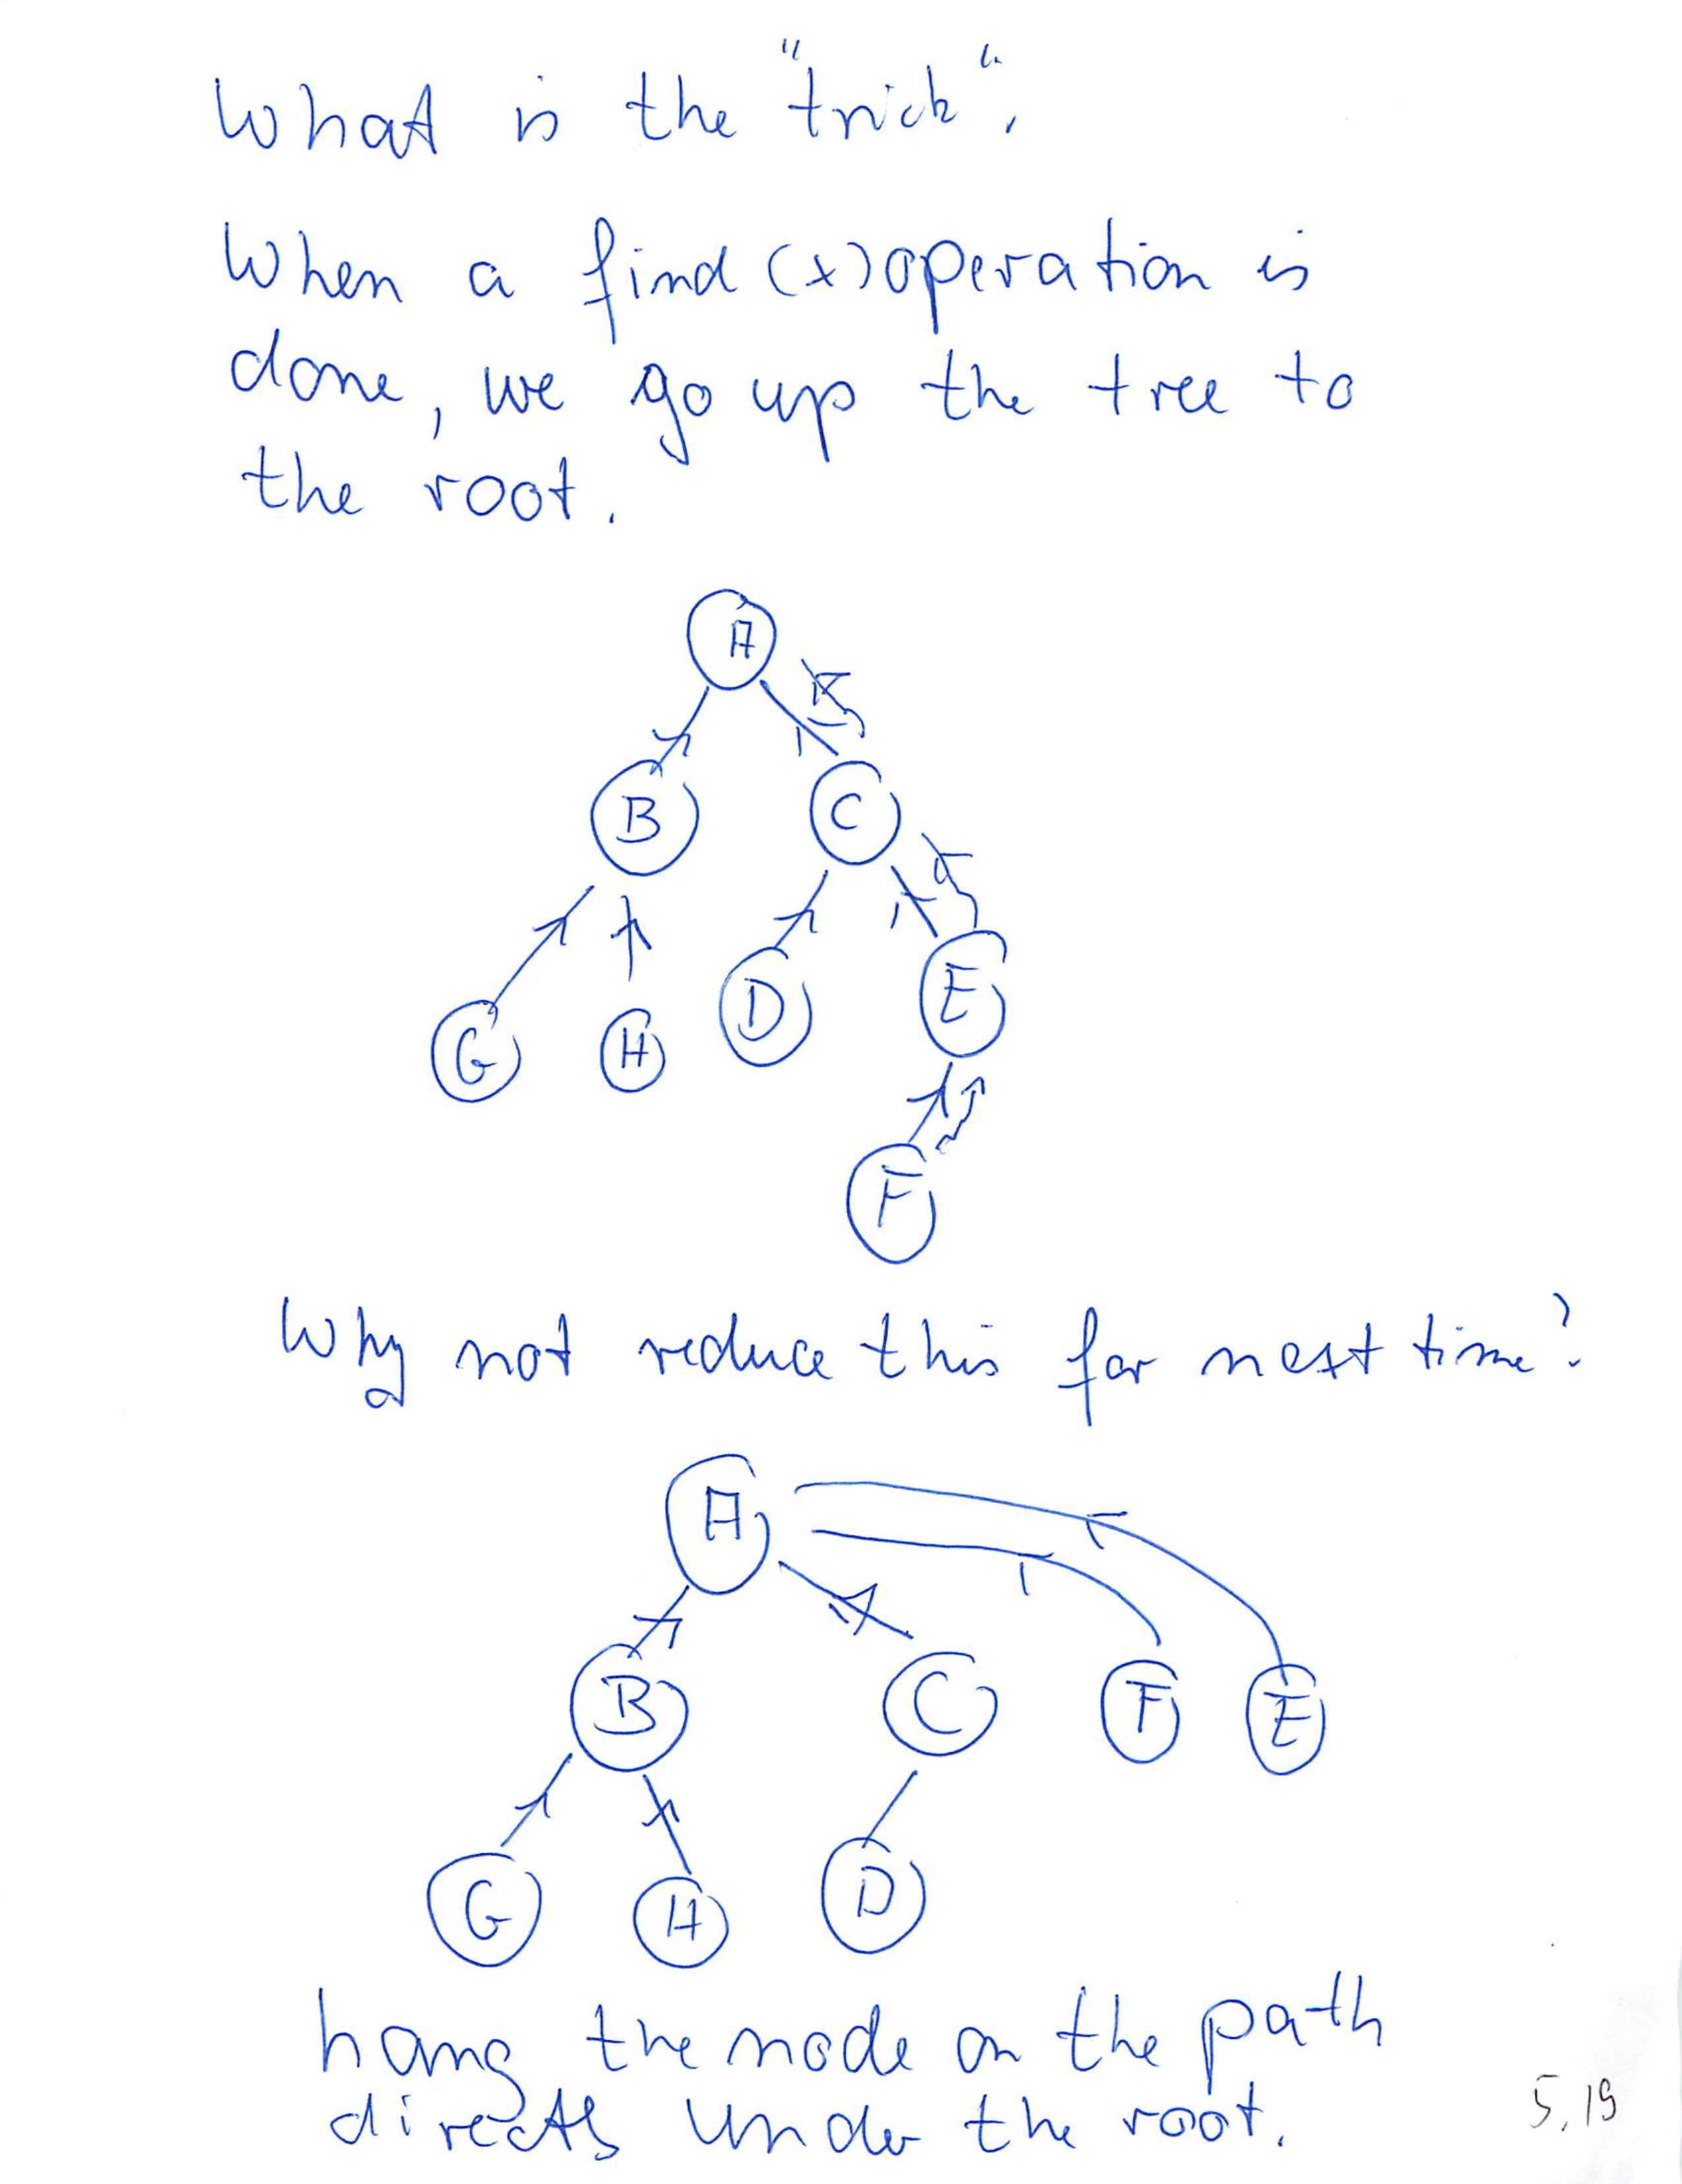 What is the "trick".
When a find (x) operation is
done, we go up the tree to
the root.
A
B C
G H D E
F
Why not reduce this for next time?
A
B C F E
G H D
hang the node on the path
directly under the root.
5.19